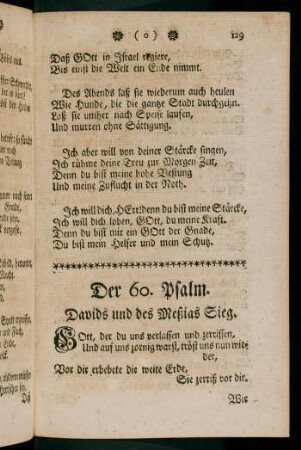 ( o ) 129
Daß GOtt in Israel regiere,
Bis einst die Welt ein Ende nimmt.
Des Abends laß sie wiederum auch heulen
Wie Hunde, die die gantze Stadt durchgehn.
Laß sie umher nach Speise laufen,
Und murren ohne Sättigung.
Ich aber will von deiner Stärcke singen,
Ich rühme deine Treu zur Morgen Zeit,
Denn du bist meine hohe Vestung
Und meine Zuflucht in der Noth.
Ich will dich, HErr! denn du bist meine Stärcke,
Ich will dich loben, GOtt, du meine Kraft.
Denn du bist mir ein GOtt der Gnade,
Du bist mein Helfer und mein Schutz.
Der 60. Psalm.
Davids und des Meßias Sieg.
GOtt, der du uns verlassen und zerrissen,
Und auf uns zornig warst, tröst uns nun wie-
der,
Vor dir erbebete die weite Erde,
Sie zerriß vor dir.
Wie